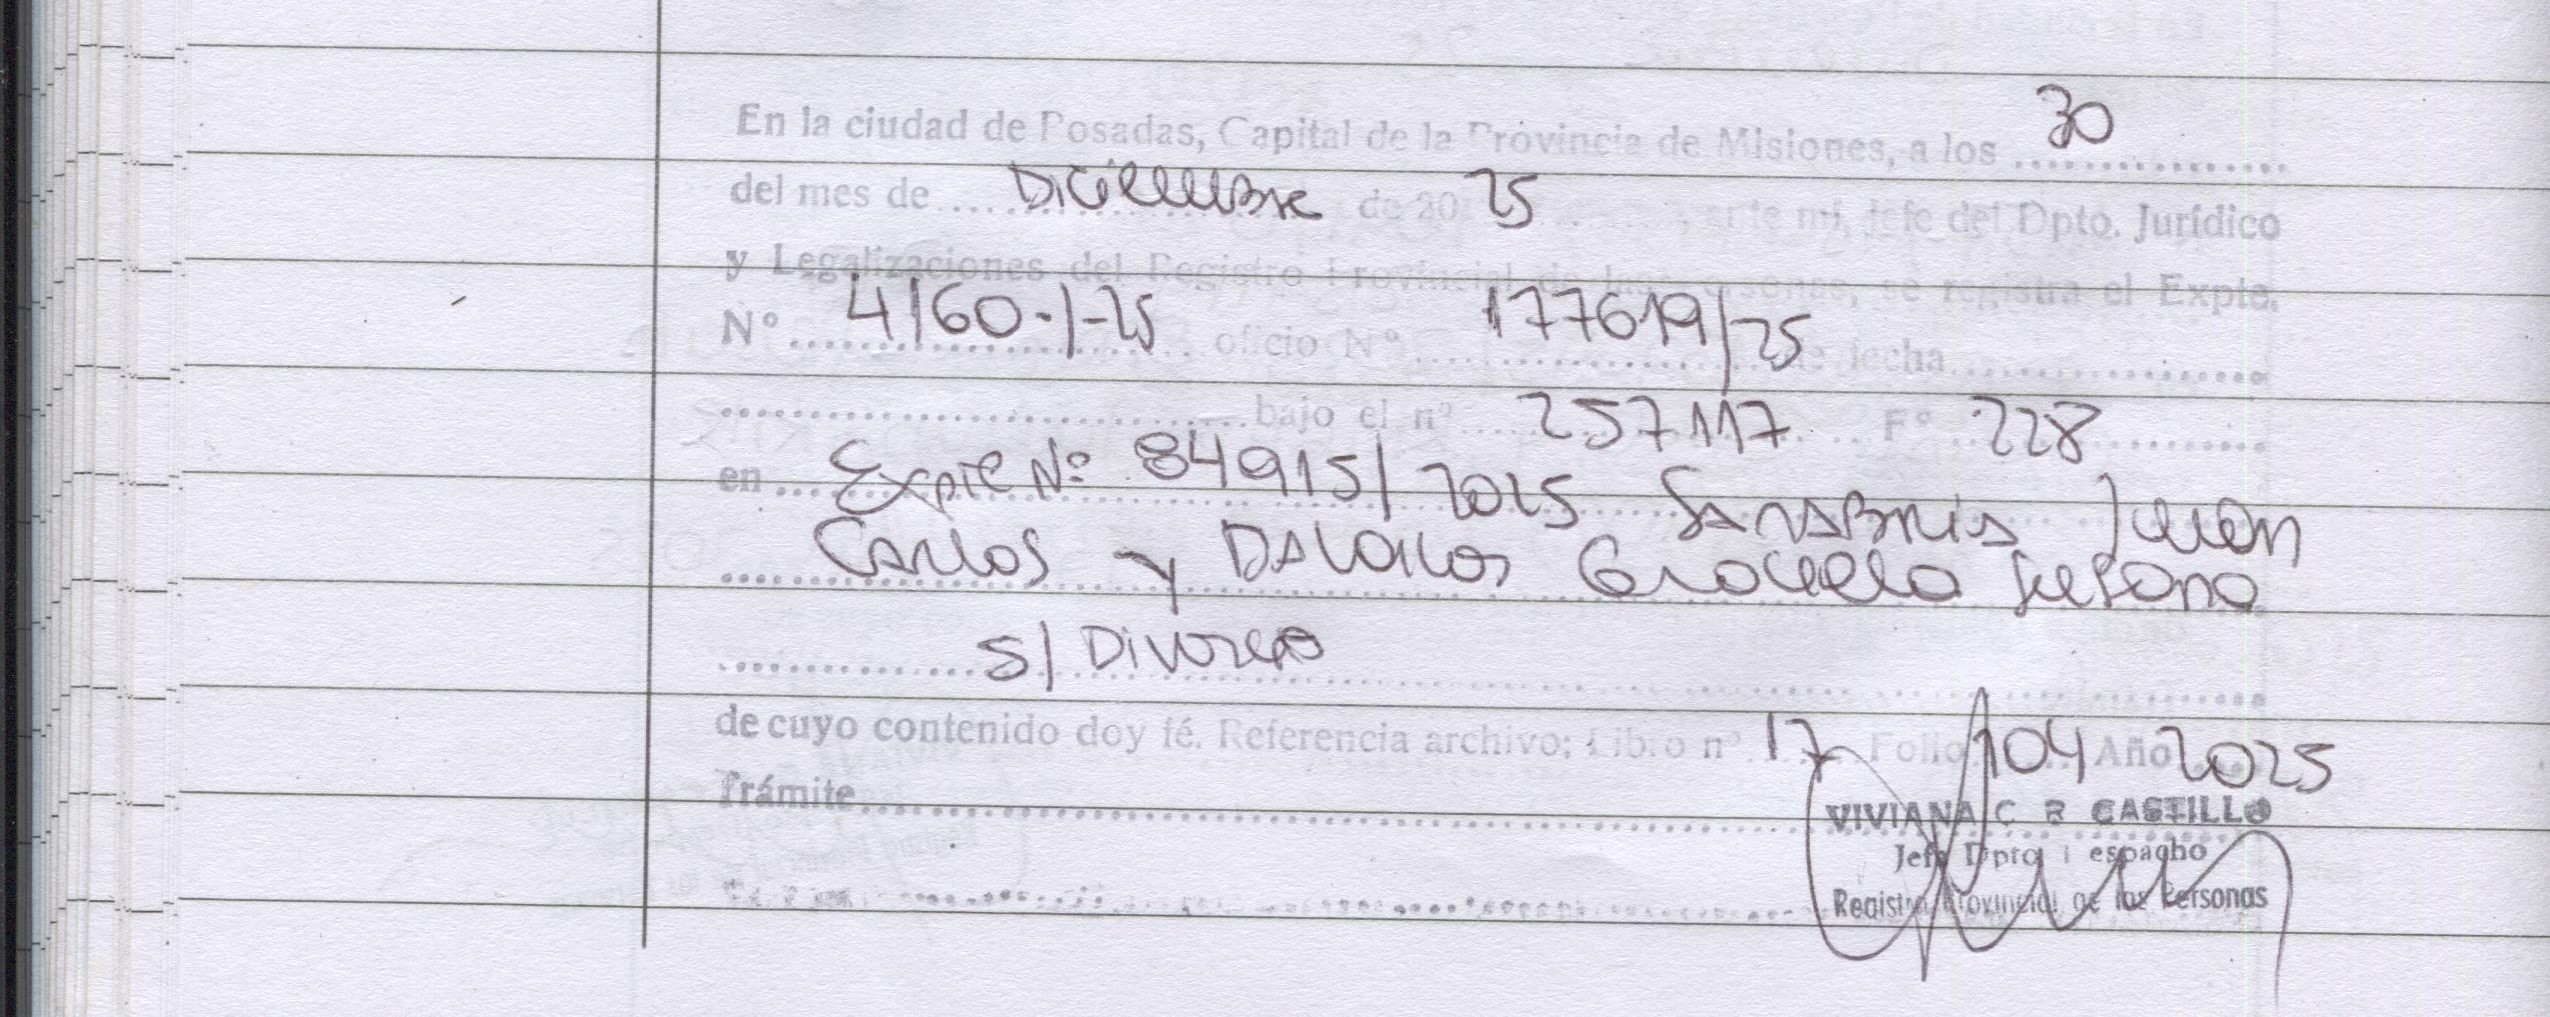 En la ciudad de Posadas, Capital de la Provincia de Misiones, a los 30
del mes de Diciembre de 20 25, ante mi, Jefe del Dpto. Jurídico
y Legalizaciones del Registro Provincial de las Personas, se registra el Expte.
N° 4160-1-25 oficio N° 177619/25 de fecha
bajo el nº 257117 F° 228
en Expte Nº 84915/2025 Sanabria Juan
Carlos y Davalos Graciela Susana
s/ Divorcio
de cuyo contenido doy fé. Referencia archivo: Libro nº 17 Folio 104 Año 2025
Trámite
VIVIANA C R CASTILLO
Jefe Dpto Despacho
Registro Provincial de las Personas